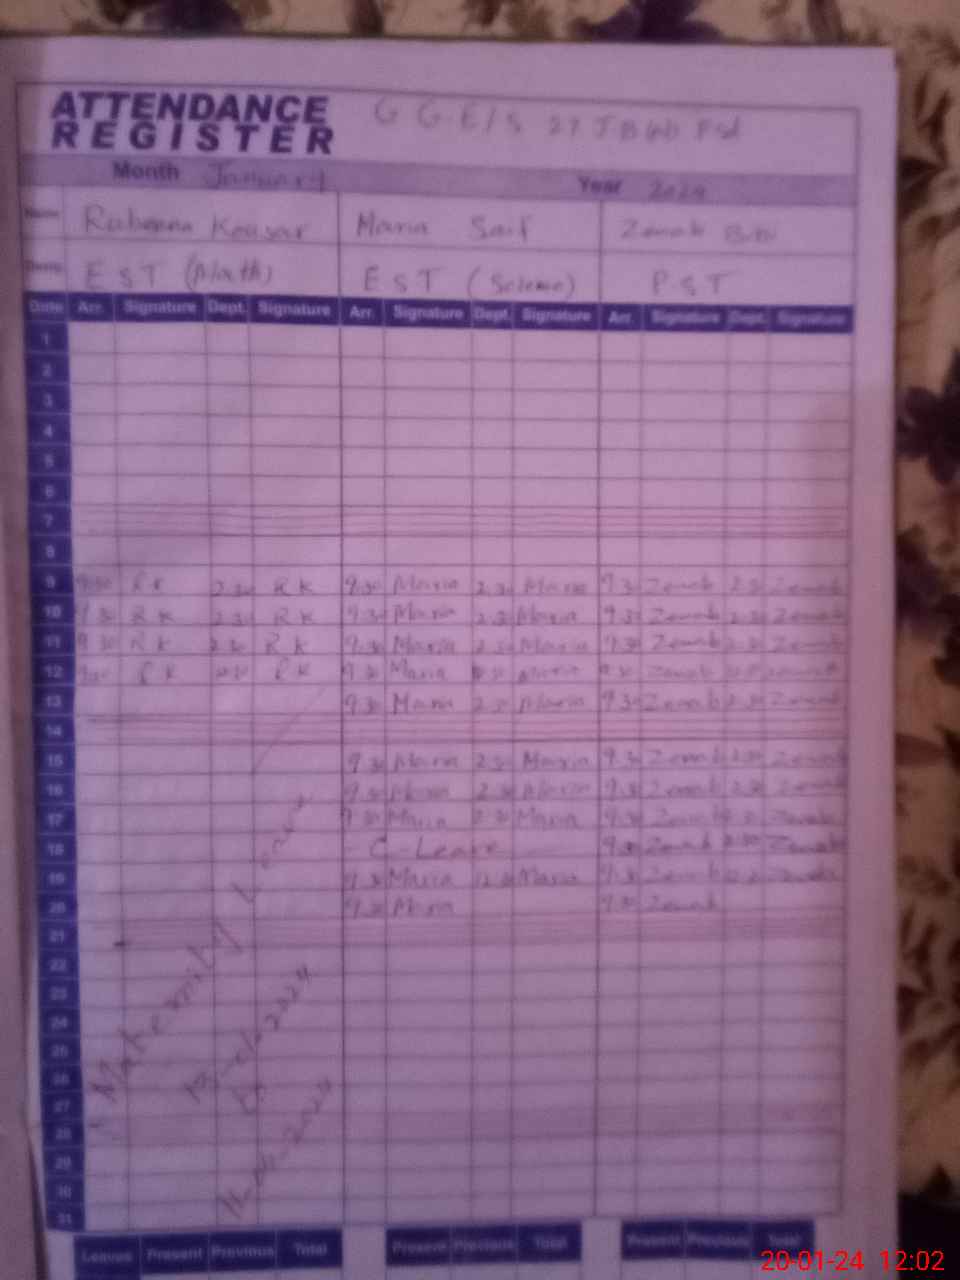 ATTENDANCE
REGISTER
G G E/S 27 J B (W) Fsd
Month January Year 2024
Name Kousar Maria Saif Zenab Bibi
EST (Math) EST (Science) PST
Date Arr. Signature Dept. Signature Arr. Signature Dept. Signature Arr. Signature Dept. Signature
1
2
3
4
5
6
7
8
9 9.30 RK 2.30 RK 9.30 Maria 2.30 Maria 9.30 Zenab 2.30 Zenab
10 9.30 RK 2.30 RK 9.30 Maria 2.30 Maria 9.30 Zenab 2.30 Zenab
11 9.30 RK 2.30 RK 9.30 Maria 2.30 Maria 9.30 Zenab 2.30 Zenab
12 RK RK 9.30 Maria Maria Zenab Zenab
13 9.30 Maria 2.30 Maria 9.30 Zenab 2.30 Zenab
14
15 9.30 Maria 2.30 Maria 9.30 Zenab 2.30 Zenab
16 9.30 Maria 2.30 Maria 9.30 Zenab 2.30 Zenab
17 9.30 Maria 2.30 Maria 9.30 Zenab Zenab
18 C-Leave 9.30 Zenab 2.30 Zenab
19 9.30 Maria Maria 9.30 Zenab Zenab
20 9.30 Maria 9.30 Zenab
21
22
23
24
25
26
27
28
29
30
31
Maternity Leave
Leaves Present Previous Total Present Previous Total Present Previous Total
20-01-24 12:02